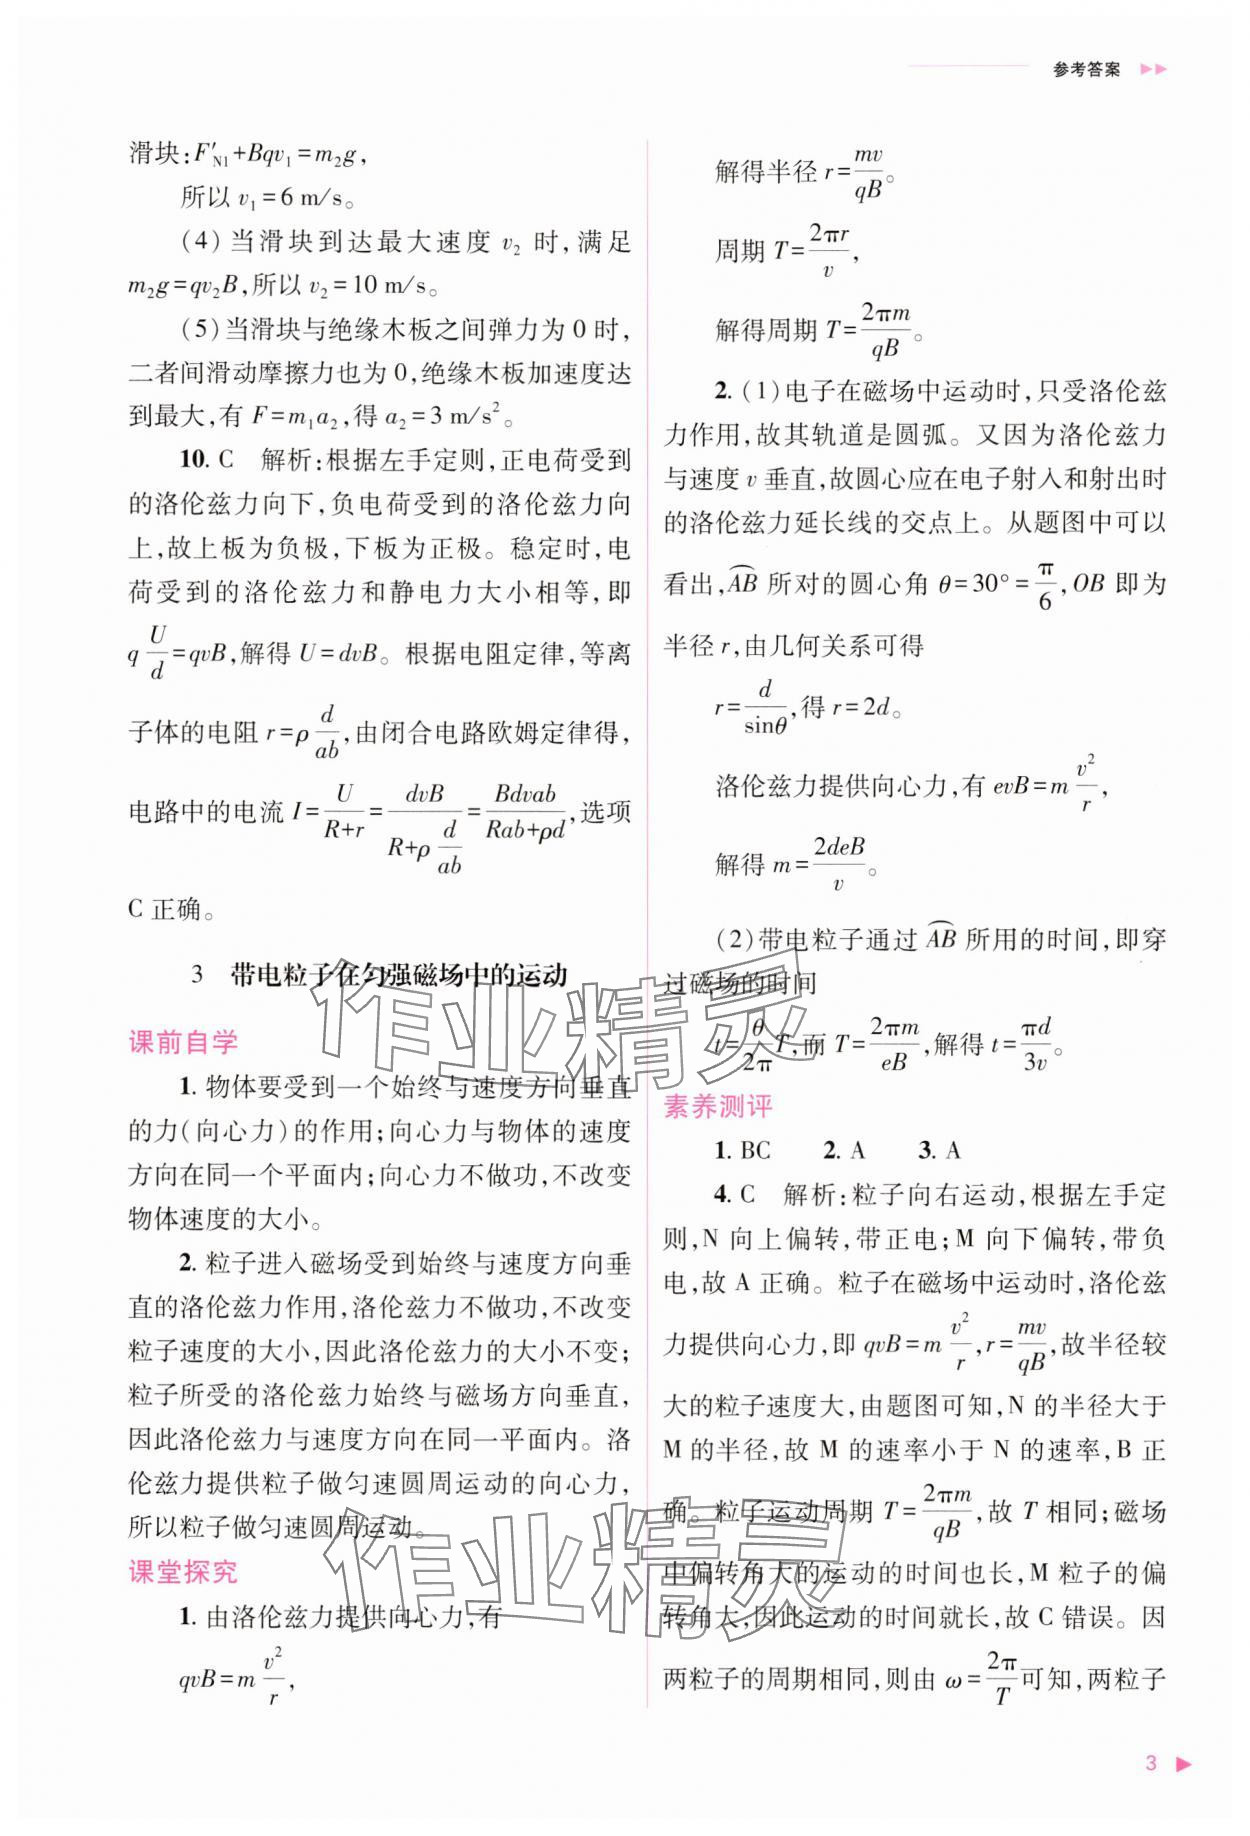 参考答案
滑块:F′N1+Bqv1=m2g,
所以 v1=6 m/s。
(4)当滑块到达最大速度 v2 时,满足
m2g=qv2B,所以 v2=10 m/s。
(5)当滑块与绝缘木板之间弹力为0时,
二者间滑动摩擦力也为0,绝缘木板加速度达
到最大,有 F=m1a2,得 a2=3 m/s²。
10. C 解析:根据左手定则,正电荷受到
的洛伦兹力向下,负电荷受到的洛伦兹力向
上,故上板为负极,下板为正极。稳定时,电
荷受到的洛伦兹力和静电力大小相等,即
q U/d=qvB,解得 U=dvB。根据电阻定律,等离
子体的电阻 r=ρ d/ab,由闭合电路欧姆定律得,
电路中的电流 I=U/(R+r)=dvB/(R+ρ d/ab)=Bdvab/(Rab+ρd),选项
C 正确。
3 带电粒子在匀强磁场中的运动
课前自学
1. 物体要受到一个始终与速度方向垂直
的力(向心力)的作用;向心力与物体的速度
方向在同一个平面内;向心力不做功,不改变
物体速度的大小。
2. 粒子进入磁场受到始终与速度方向垂
直的洛伦兹力作用,洛伦兹力不做功,不改变
粒子速度的大小,因此洛伦兹力的大小不变;
粒子所受的洛伦兹力始终与磁场方向垂直,
因此洛伦兹力与速度方向在同一平面内。洛
伦兹力提供粒子做匀速圆周运动的向心力,
所以粒子做匀速圆周运动。
课堂探究
1. 由洛伦兹力提供向心力,有
qvB=m v²/r,
解得半径 r=mv/qB。
周期 T=2πr/v,
解得周期 T=2πm/qB。
2. (1)电子在磁场中运动时,只受洛伦兹
力作用,故其轨道是圆弧。又因为洛伦兹力
与速度 v 垂直,故圆心应在电子射入和射出时
的洛伦兹力延长线的交点上。从题图中可以
看出,⌒AB 所对的圆心角 θ=30°=π/6,OB 即为
半径 r,由几何关系可得
r=d/sinθ,得 r=2d。
洛伦兹力提供向心力,有 evB=m v²/r,
解得 m=2deB/v。
(2)带电粒子通过 ⌒AB 所用的时间,即穿
过磁场的时间
t=θ/2π T,而 T=2πm/eB,解得 t=πd/3v。
素养测评
1. BC 2. A 3. A
4. C 解析:粒子向右运动,根据左手定
则,N 向上偏转,带正电;M 向下偏转,带负
电,故 A 正确。粒子在磁场中运动时,洛伦兹
力提供向心力,即 qvB=m v²/r,r=mv/qB,故半径较
大的粒子速度大,由题图可知,N 的半径大于
M 的半径,故 M 的速率小于 N 的速率,B 正
确。粒子运动周期 T=2πm/qB,故 T 相同;磁场
中偏转角大的运动的时间也长,M 粒子的偏
转角大,因此运动的时间就长,故 C 错误。因
两粒子的周期相同,则由 ω=2π/T可知,两粒子
3
作业精灵
作业精灵